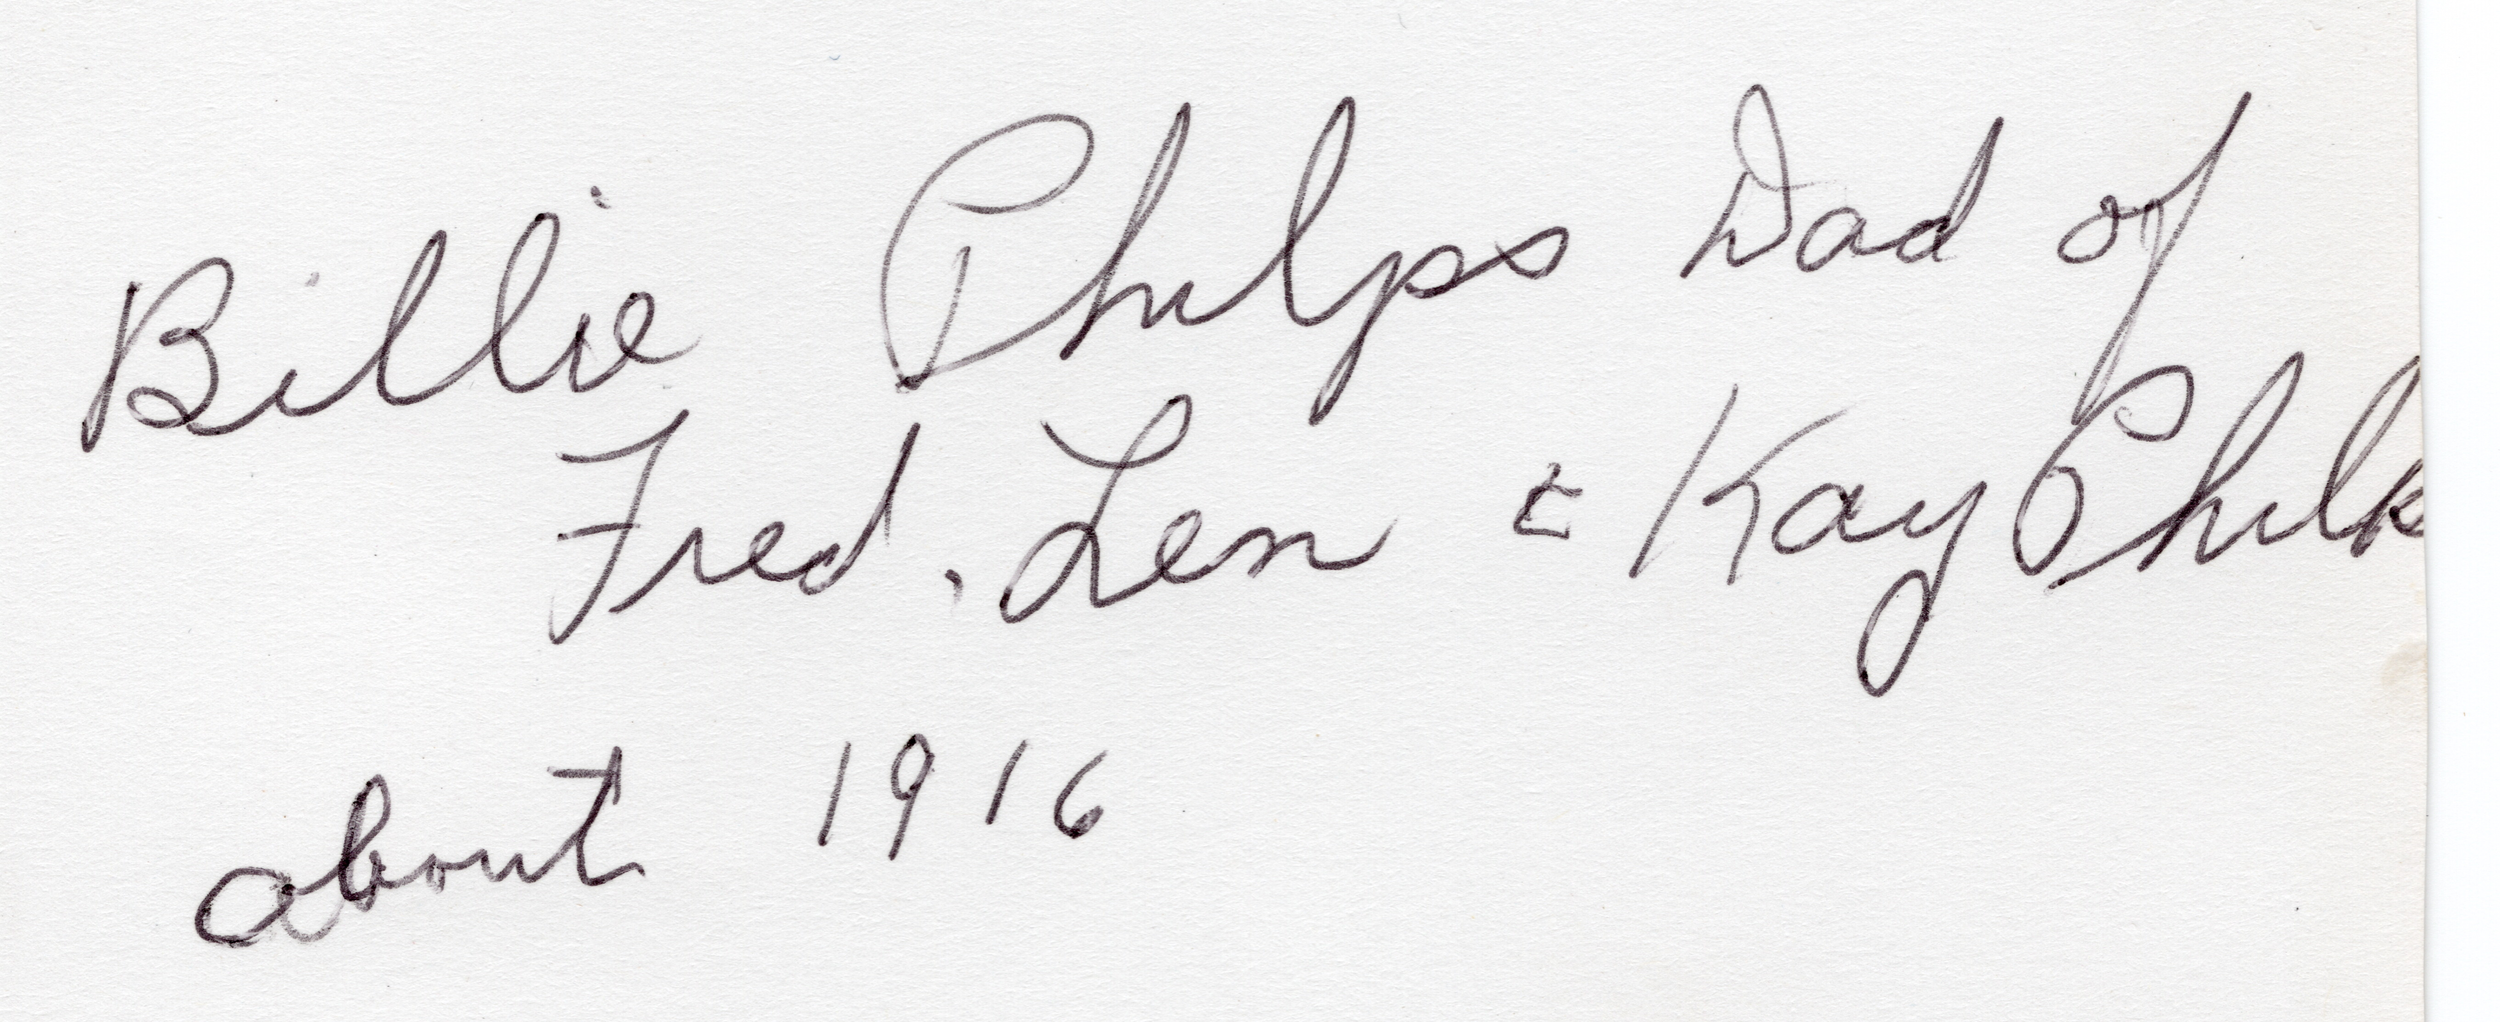 Billie Phelps Dad of
Fred, Len & Kay Phelps
about 1916